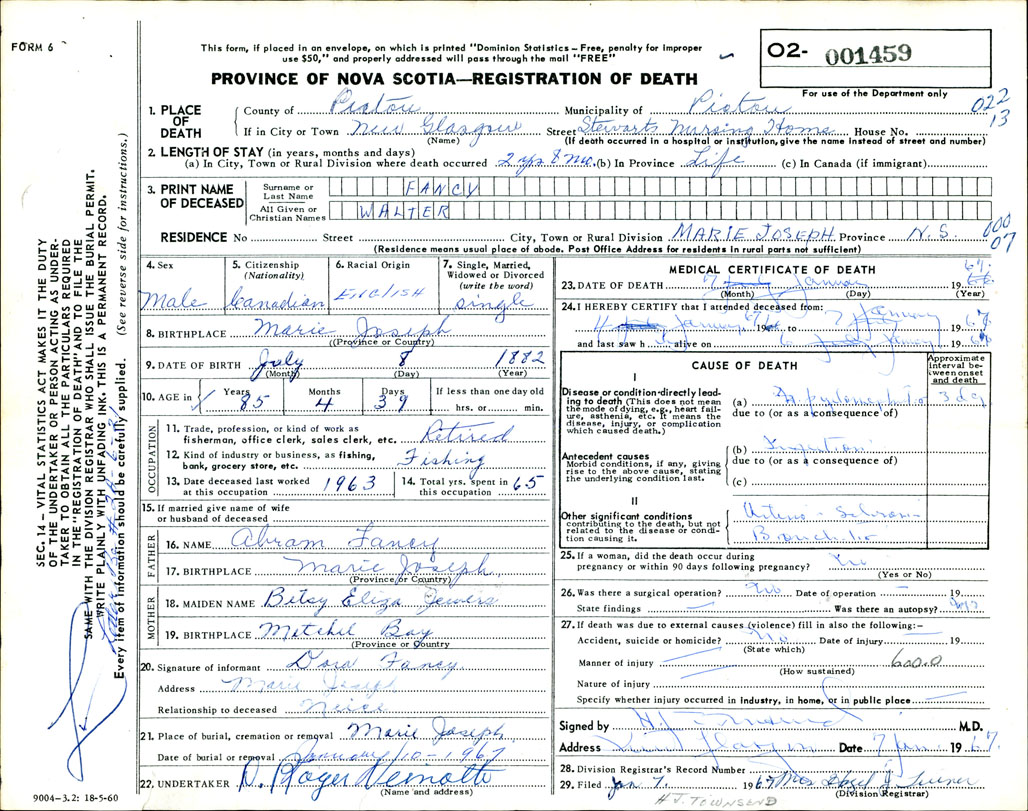 FORM 6
This form, if placed in an envelope, on which is printed "Dominion Statistics – Free, penalty for improper
use $50," and properly addressed will pass through the mail "FREE"
PROVINCE OF NOVA SCOTIA—REGISTRATION OF DEATH
O2- 001459
For use of the Department only
022
13
1. PLACE OF DEATH
County of Pictou Municipality of Pictou
If in City or Town New Glasgow Street Stewarts Nursing Home House No.
(Name) (If death occurred in a hospital or institution, give the name instead of street and number)
2. LENGTH OF STAY (in years, months and days)
(a) In City, Town or Rural Division where death occurred 2 yrs 8 mo. (b) In Province Life (c) In Canada (if immigrant)
3. PRINT NAME OF DECEASED
Surname or Last Name FANCY
All Given or Christian Names WALTER
RESIDENCE No Street City, Town or Rural Division MARIE JOSEPH Province N.S.
000
07
(Residence means usual place of abode. Post Office Address for residents in rural parts not sufficient)
4. Sex
Male
5. Citizenship (Nationality)
Canadian
6. Racial Origin
ENGLISH
7. Single, Married, Widowed or Divorced (write the word)
single
8. BIRTHPLACE Marie Joseph
(Province or Country)
9. DATE OF BIRTH July 8 1882
(Month) (Day) (Year)
10. AGE in Years 85 Months 4 Days 39 If less than one day old hrs. or min.
OCCUPATION
11. Trade, profession, or kind of work as
fisherman, office clerk, sales clerk, etc. Retired
12. Kind of industry or business, as fishing,
bank, grocery store, etc. Fishing
13. Date deceased last worked at this occupation 1963
14. Total yrs. spent in this occupation 65
15. If married give name of wife
or husband of deceased
FATHER
16. NAME Abram Fancy
17. BIRTHPLACE Marie Joseph
(Province or Country)
MOTHER
18. MAIDEN NAME Betsy Eliza Jewers
19. BIRTHPLACE Mitchel Bay
(Province or Country)
20. Signature of informant Dora Fancy
Address Marie Joseph
Relationship to deceased Niece
21. Place of burial, cremation or removal Marie Joseph
Date of burial or removal January 10 - 1967
22. UNDERTAKER D. Roger
(Name and address)
MEDICAL CERTIFICATE OF DEATH
23. DATE OF DEATH 7 January 19 67
(Month) (Day) (Year)
24. I HEREBY CERTIFY that I attended deceased from:
4 January 19 67 to 7 January 19 67
and last saw h alive on 6 January 19
CAUSE OF DEATH
Approximate interval between onset and death
I
Disease or condition directly leading to death (This does not mean the mode of dying, e.g., heart failure, asthenia, etc. It means the disease, injury, or complication which caused death.)
(a) 3 da
due to (or as a consequence of)
Antecedent causes
Morbid conditions, if any, giving rise to the above cause, stating the underlying condition last.
(b)
due to (or as a consequence of)
(c)
II
Other significant conditions
contributing to the death, but not related to the disease or condition causing it.
25. If a woman, did the death occur during
pregnancy or within 90 days following pregnancy?
(Yes or No)
26. Was there a surgical operation? No Date of operation 19
State findings Was there an autopsy?
27. If death was due to external causes (violence) fill in also the following:–
Accident, suicide or homicide? No Date of injury 19
(State which)
Manner of injury
(How sustained)
Nature of injury
Specify whether injury occurred in industry, in home, or in public place
Signed by M.D.
Address New Glasgow Date 7 Jan 19 67
28. Division Registrar's Record Number
29. Filed Jan 7 1967
(Division Registrar)
H J. TOWNSEND
SEC. 14 – VITAL STATISTICS ACT MAKES IT THE DUTY
OF THE UNDERTAKER OR PERSON ACTING AS UNDER-
TAKER TO OBTAIN ALL THE PARTICULARS REQUIRED
IN THE "REGISTRATION OF DEATH" AND TO FILE THE
SAME WITH THE DIVISION REGISTRAR WHO SHALL ISSUE THE BURIAL PERMIT.
WRITE PLAINLY WITH UNFADING INK. THIS IS A PERMANENT RECORD.
Every item of information should be carefully supplied. (See reverse side for instructions.)
9004-3.2: 18-5-60